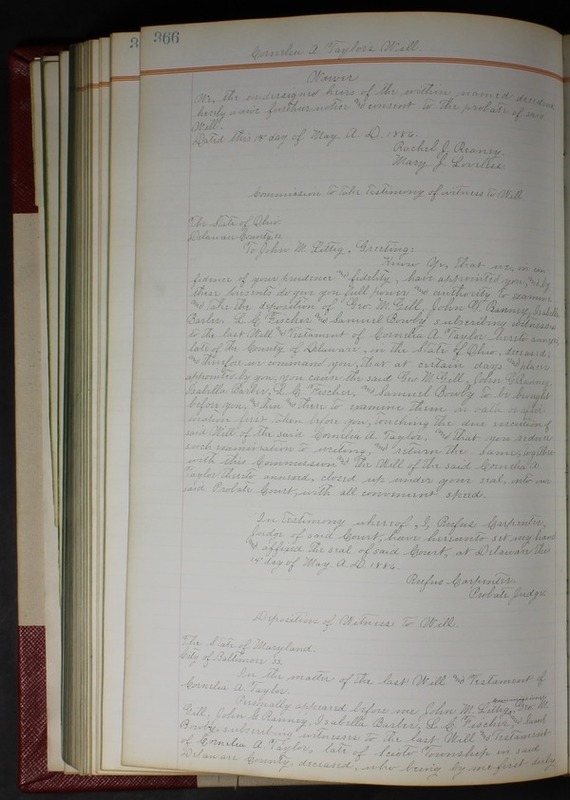 366
Cornelia A Taylor's Will.
Waiver
We, the undersigned heirs of the within named decedent
hereby waive further notice and consent to the probate of said
Will.
Dated this 14" day of May A. D. 1886.
Rachel J. Reaney.
Mary J. Loveless.
Commission to take testimony of witness to Will
The State of Ohio
Delaware County, ss
To John M. Littig, Greeting:
Know Ye, That we, in con
fidence of your prudence and fidelity, have appointed you, and by
these presents do give you full power and authority to examine
and take the deposition of Geo. M. Gill, John G. Ranney, Isabella
Barber, L. C. Fischer and Samuel Bowby subscribing witnesses
to the last Will and Testament of Cornelia A Taylor hereto annexed,
late of the County of Delaware, in the State of Ohio, deceased;
and therefore we command you, that at certain days and places
appointed by you, you cause the said Geo M. Gill, John G. Ranney,
Isabella Barber, L. C. Fischer, and Samuel Bowby to be brought
before you, and then and there to examine them on oath or affir
mation first taken before you, touching the due execution of
said Will of the said Cornelia A. Taylor, and that you reduce
such examination to writing, and return the same, together
with this Commission and the Will of the said Cornelia A.
Taylor thereto annexed, closed up under your seal, into our
said Probate Court, with all convenient speed.
In testimony whereof, I, Rufus Carpenter,
Judge of said Court, have hereunto set my hand
and affixed the seal of said Court, at Delaware this
14" day of May. A. D. 1886.
Rufus Carpenter
Probate Judge
Deposition of Witness to Will.
The State of Maryland.
City of Baltimore ss
In the matter of the last Will and Testament of
Cornelia A. Taylor.
Personally appeared before me John M. Littig, commissioner Geo. M.
Gill, John G Ranney, Isabella Barber, L. C Fischer and Saml
Bowby, subscribing witnesses to the last Will and Testament
of Cornelia A. Taylor, late of Scioto Township in said
Delaware County, deceased, who being by me first duly